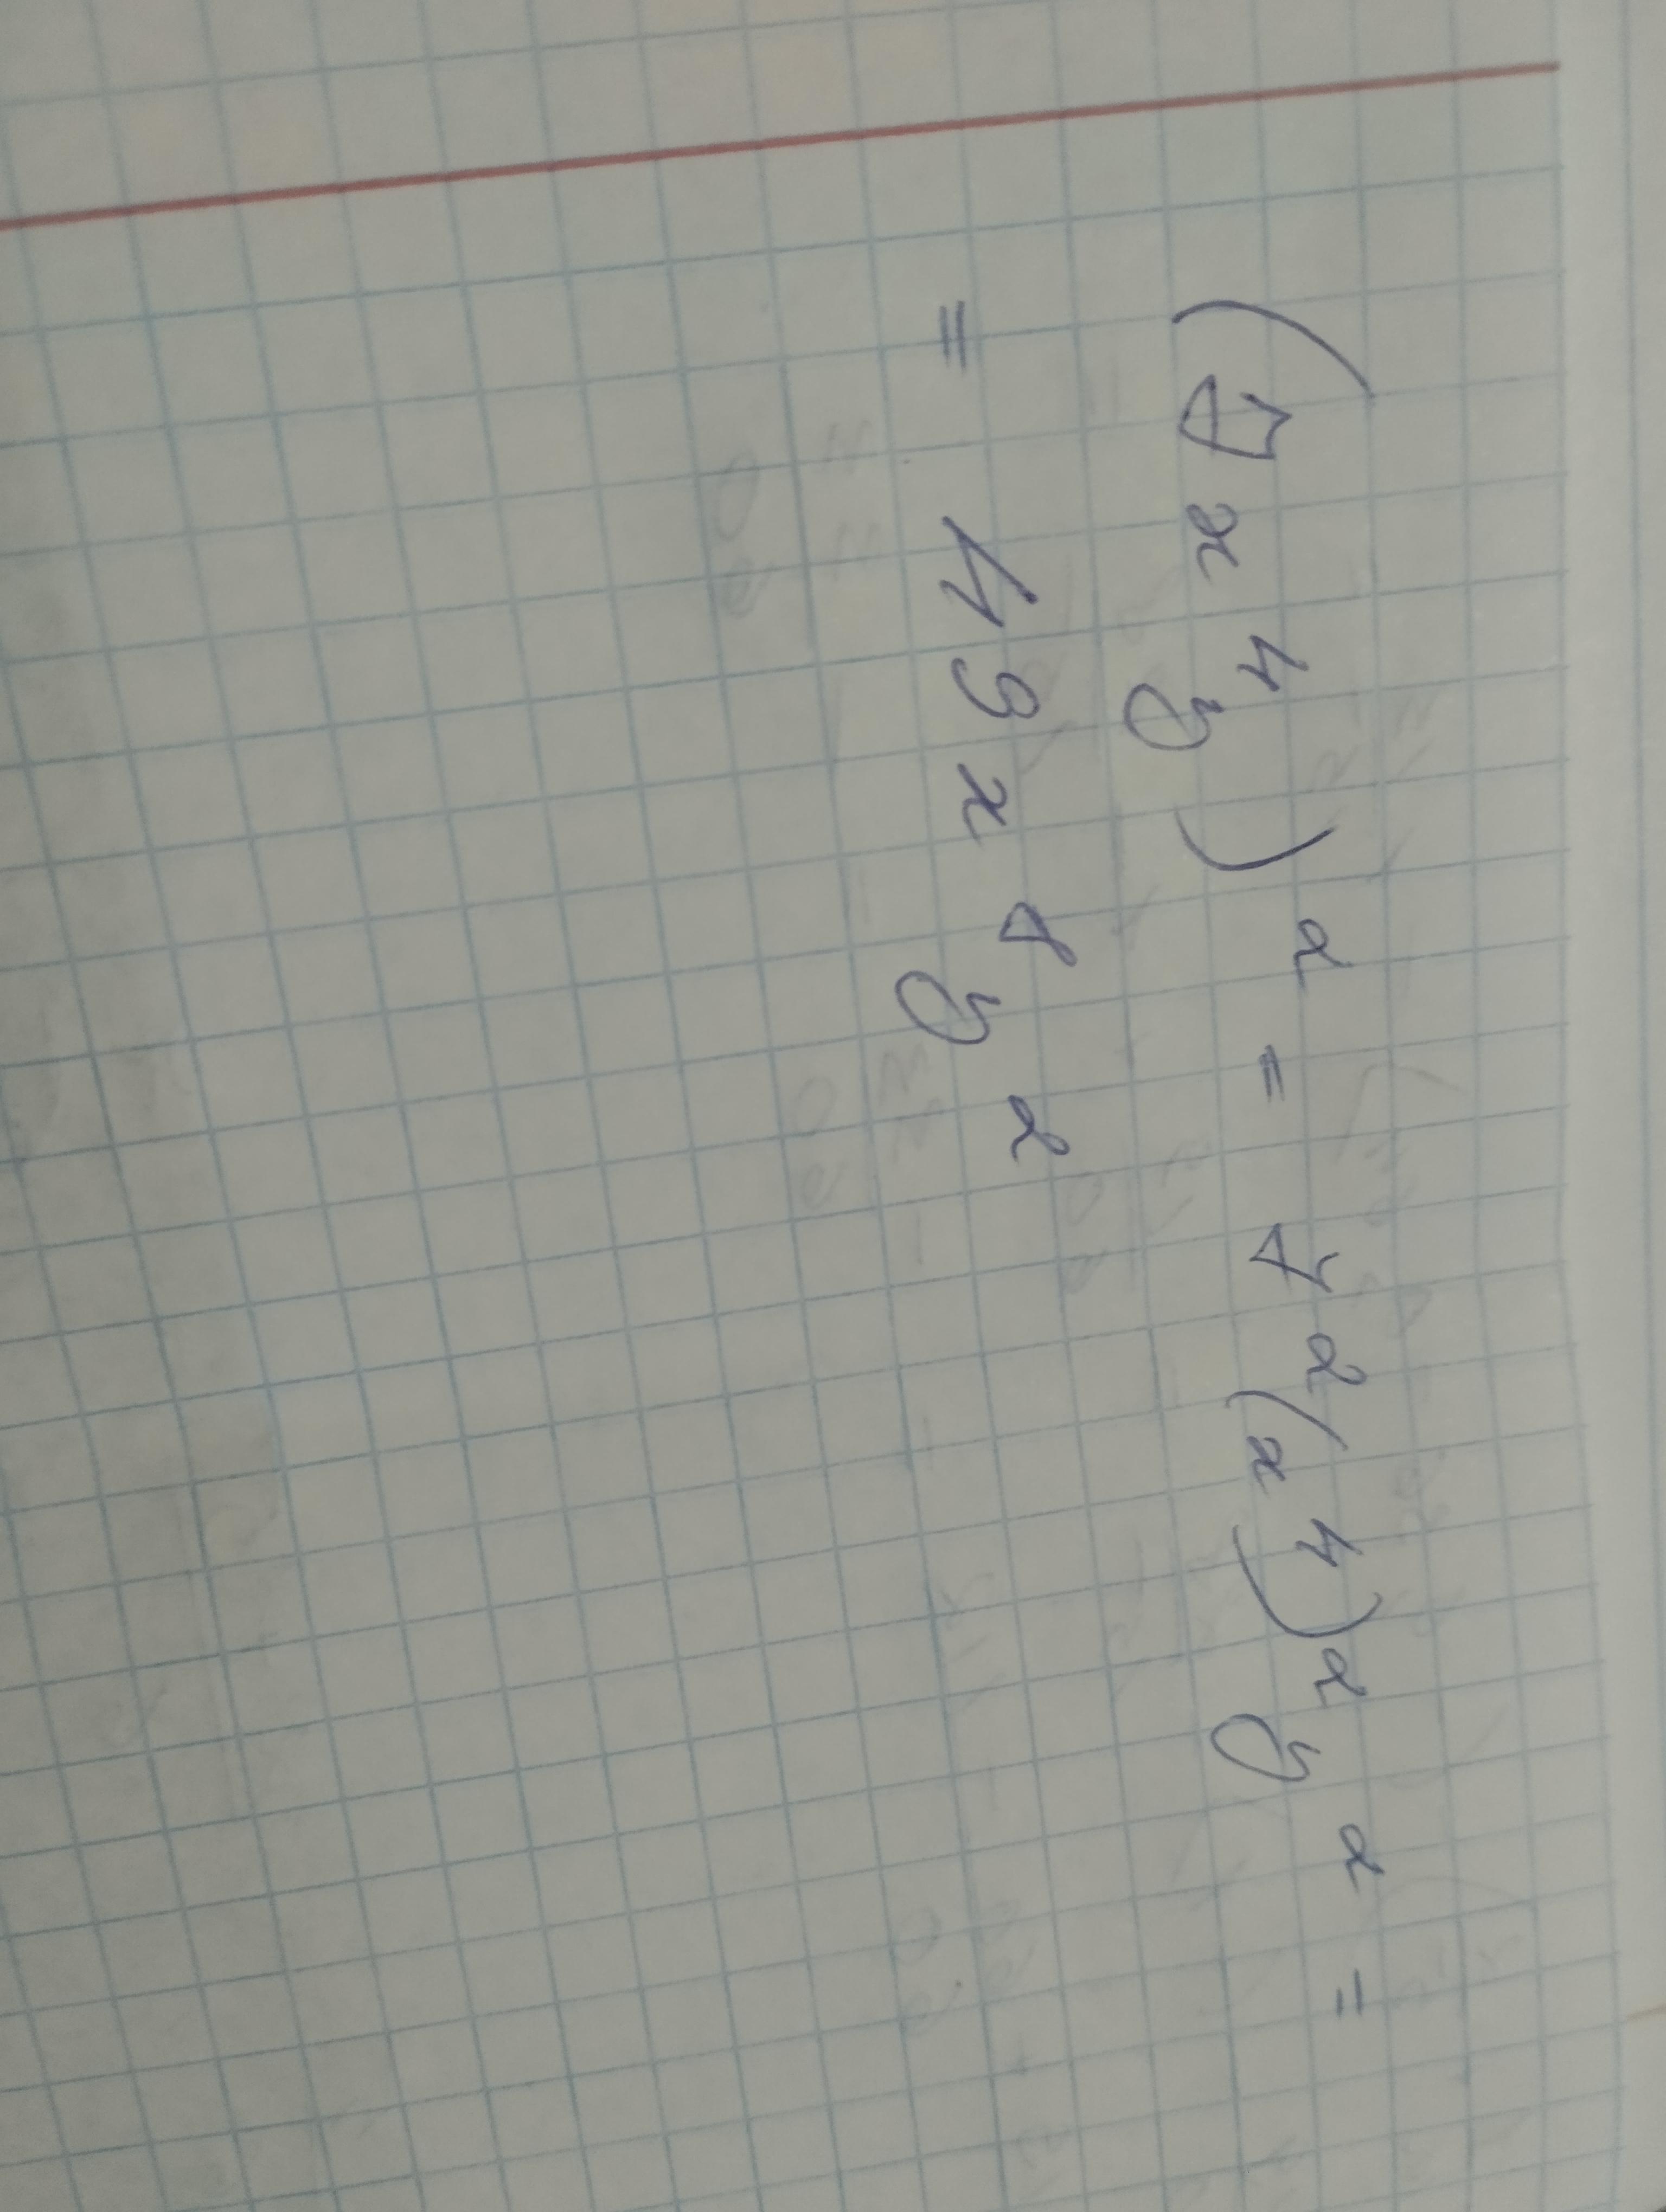 (7x⁴y)² = 7²(x⁴)²y² =
= 49x⁸y²